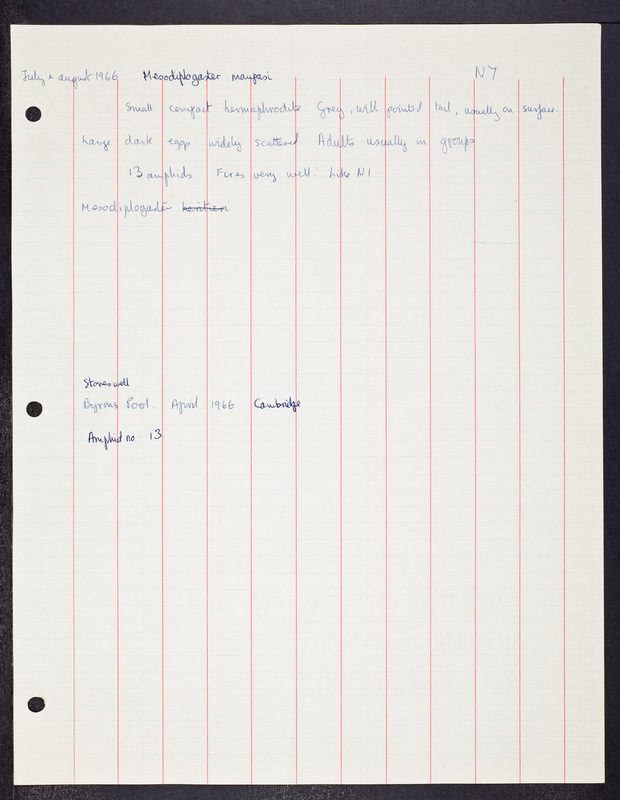 July + august 1966 Mesodiplogaster maupasi N7
Small compact hermaphrodite. Grey, with pointed tail, usually on surface.
Large dark eggs widely scattered. Adults usually in groups
13 amphids Fixes very well. Like N1.
Mesodiplogaster
Stoneswell
Byrons Pool. April 1966 Cambridge
Amphid no. 13